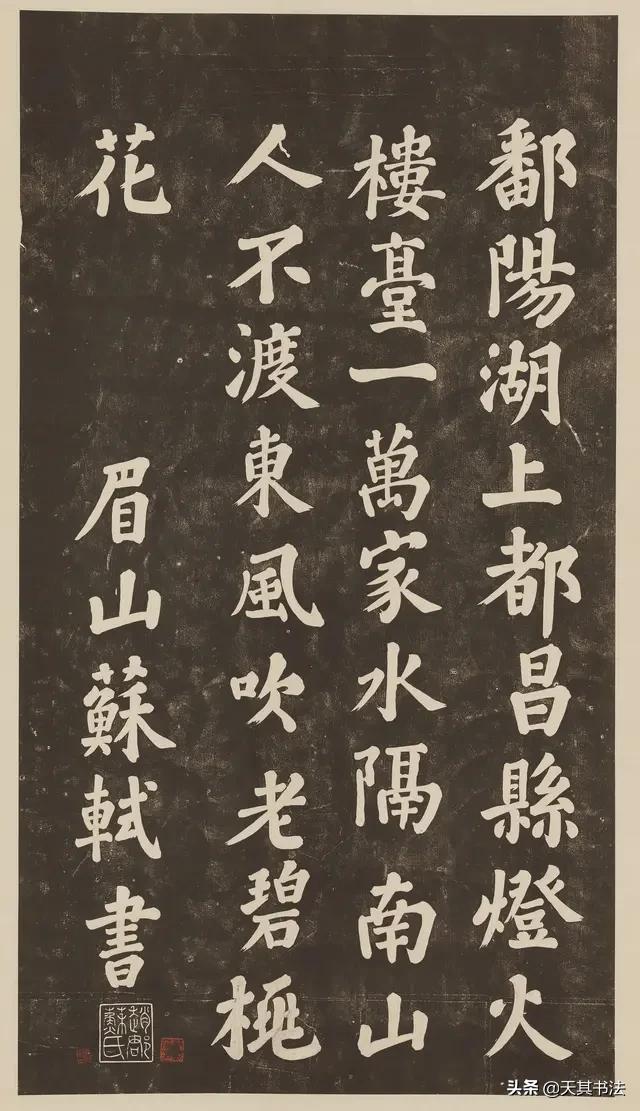 鄱陽湖上都昌縣燈火
樓臺一萬家水隔南山
人不渡東風吹老碧桃
花 眉山蘇軾書
趙郡蘇氏
头条 @天其书法